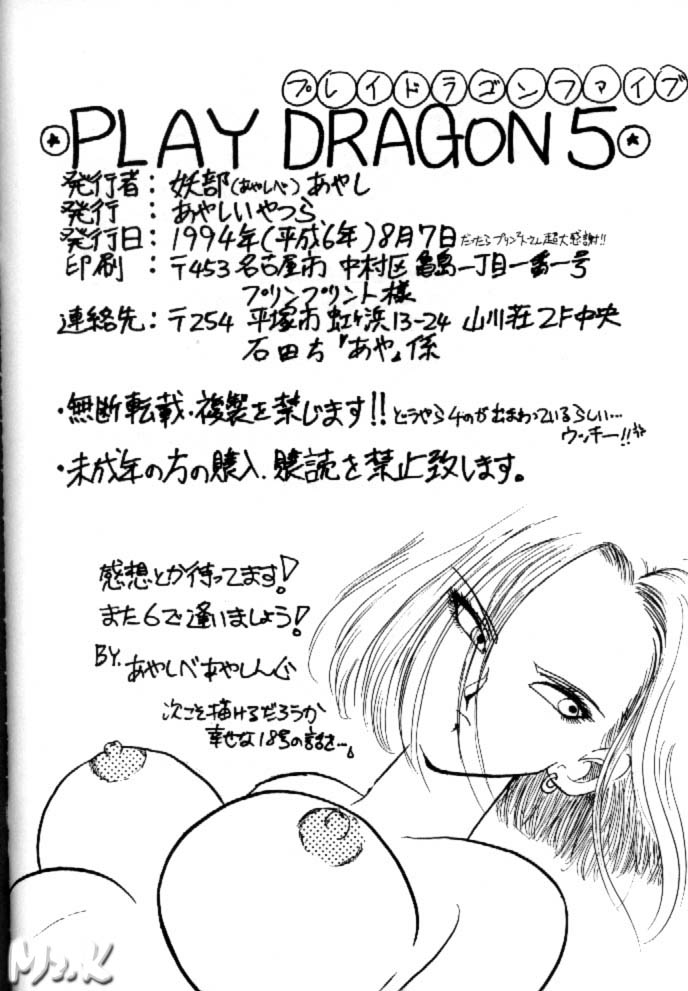 プレイドラゴンファイブ
PLAY DRAGON 5
発行者：妖部(あやしべ)あやし
発行：あやしいやつら
発行日：1994年(平成6年)8月7日だったらプリンプリントさん超大感謝!!
印刷：〒453名古屋市 中村区亀島一丁目一番一号
プリンプリント様
連絡先：〒254 平塚市虹ヶ浜13-24 山川荘2F中央
石田方『あや』係
・無断転載・複製を禁じます!!どうやら4のが出まわっているらしい…
ウッキー!!
・未成年の方の購入、購読を禁止致します。
感想とか待ってます!
また6で逢いましょう!
BY.あやしべあやしん心
次こそ描けるだろうか
幸せな18号の話を…。
Mr.K